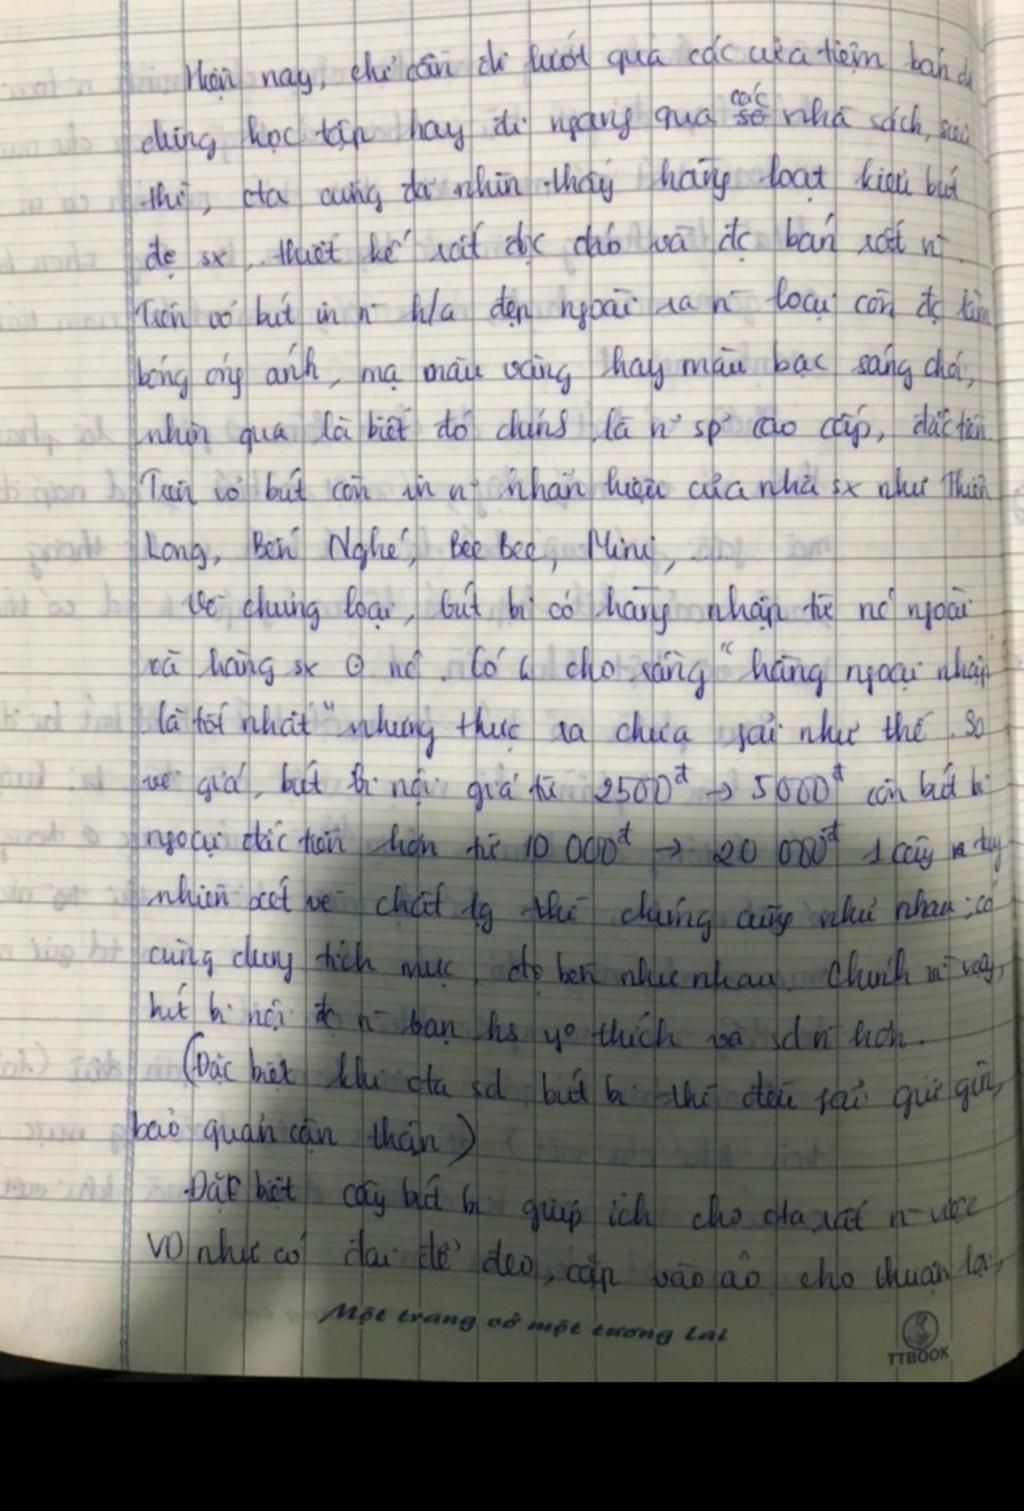 Hiện nay, chỉ cần đi lướt qua các cửa tiệm bán
dùng học tập hay đi ngang qua các nhà sách, siêu
thị, cta cũng đã nhìn thấy hàng loạt kiểu bút
đc sx, thiết kế rất độc đáo và đc bán rất n~.
Trên vỏ bút in n~ h/a đẹp ngoài ra n~ loại còn đc làm
bóng óng ánh, mạ màu vàng hay màu bạc sáng chói,
nhìn qua là biết đó chính là n~ sp cao cấp, đắt tiền.
Trên vỏ bút còn in n~ nhãn hiệu của nhà sx như Thiên
Long, Bến Nghé, Bee Bee, Mini,
Về chủng loại, bút bi có hàng nhập từ nc ngoài
và hàng sx nc. Có cho rằng "hàng ngoại nhập
là tốt nhất" nhưng thực ra chưa fải như thế. So
về giá, bút bi nội giá từ 2500đ → 5000đ còn bút bi
ngoại đắt tiền hơn từ 10 000đ → 20 000đ 1 cây tuy
nhiên xét về chất lg thì chúng cũng như nhau: có
cùng dung tích mực, độ bền như nhau. Chính vì vậy,
bút bi nội đc n~ bạn hs yo thích và sd n~ hơn.
(Đặc biệt khi cta sd bút bi thì đều fải giữ gìn,
bảo quản cẩn thận)
Đặc biệt cây bút bi giúp ích cho cta rất n~ việc
VD như có đai để đeo, cặp vào áo cho thuận lợi,
Một trang vở một tương lai
TTBOOK